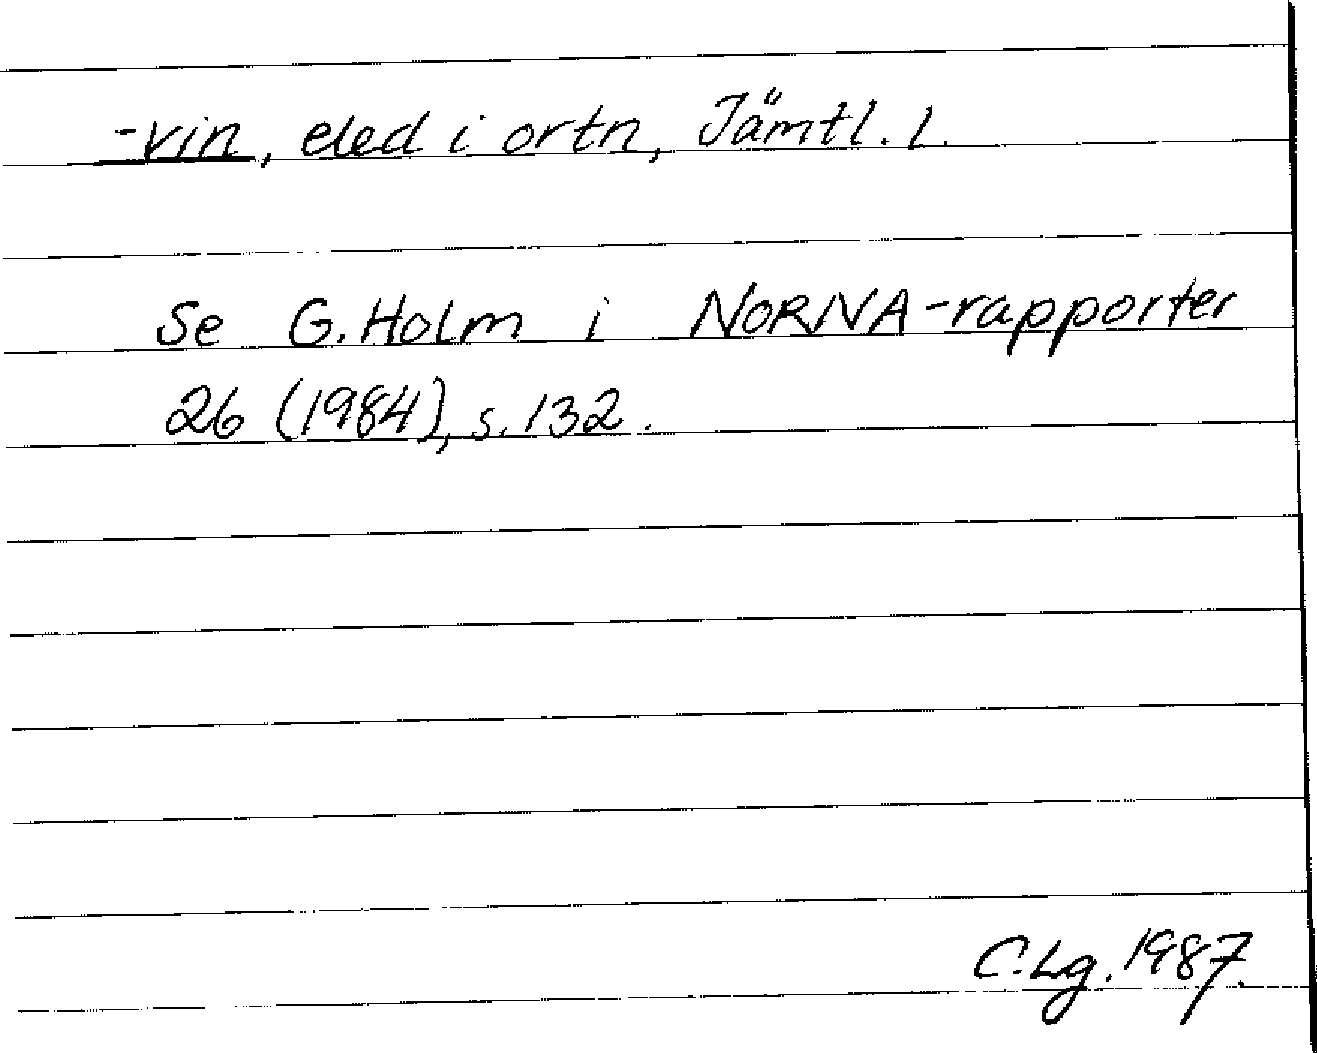 -vin, eled i ortn, Jämtl. l.
Se G. Holm i NORNA-rapporter
26 (1984), s. 132.
C. Lg. 1987.